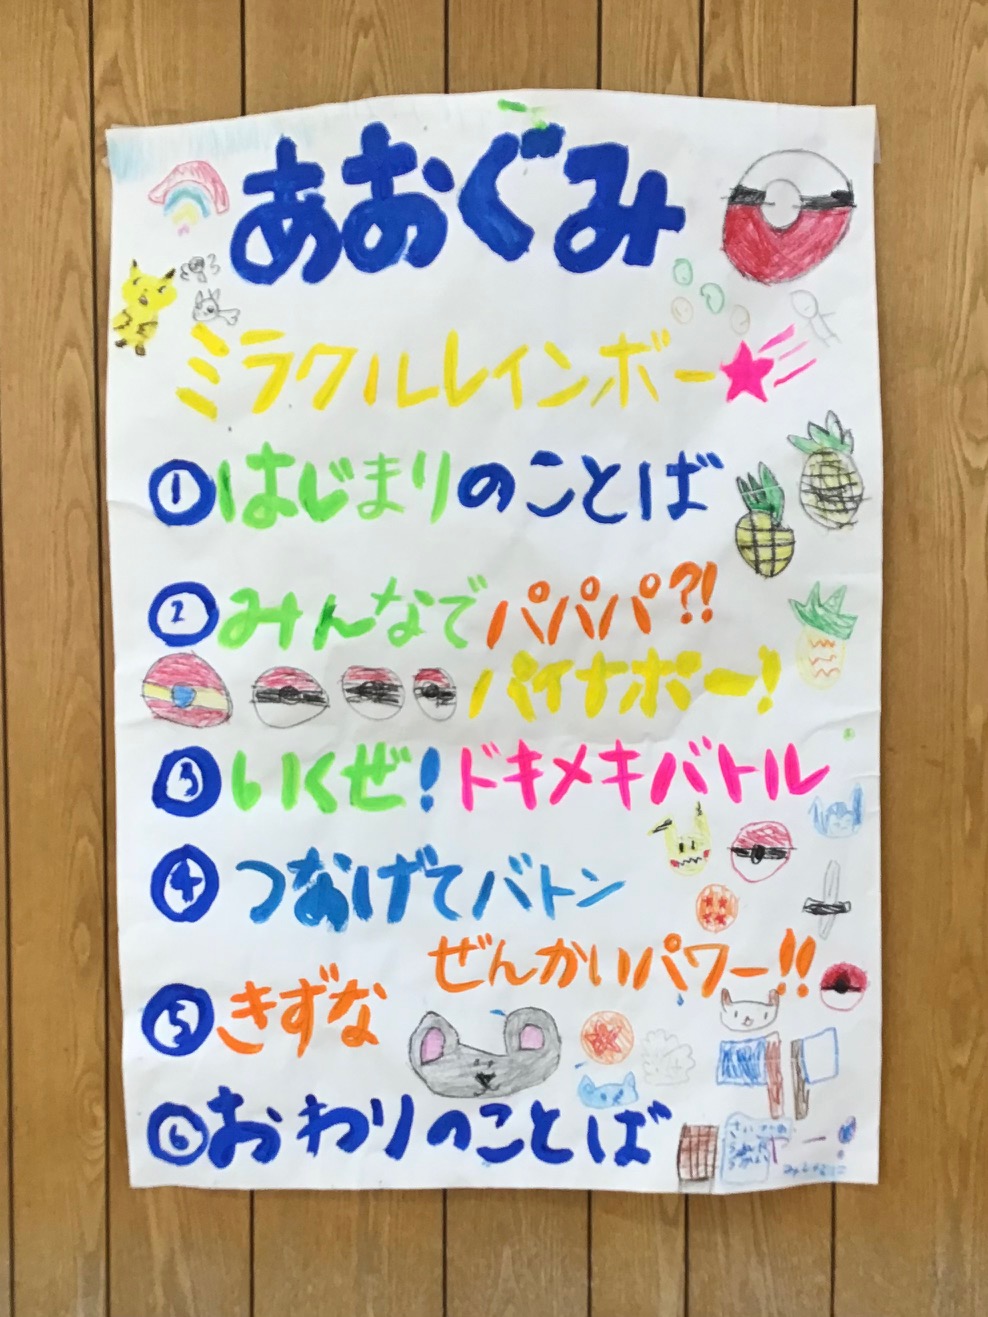 あおぐみ
ミラクルレインボー★
①はじまりのことば
②みんなでパパパ?!
パイナポー!
③いくぜ!ドキメキバトル
④つなげてバトン
ぜんかいパワー!!
⑤きずな
⑥おわりのことば